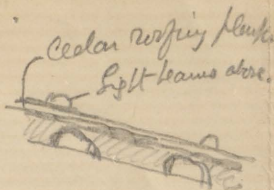 Cedar roofing planks
Light beams above.